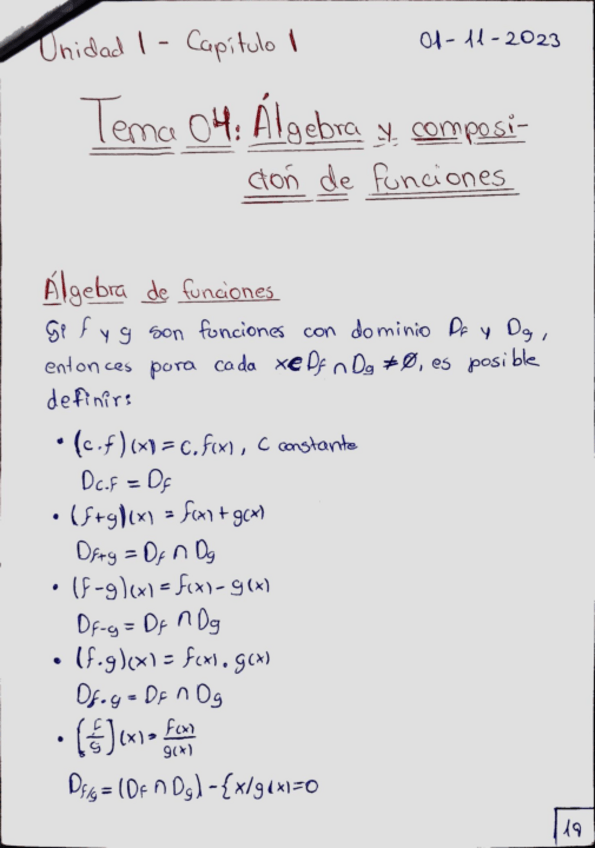 Unidad 1 - Capítulo 1
01-11-2023
Tema 04: Álgebra y composi-
ción de funciones
Álgebra de funciones
Si f y g son funciones con dominio Df y Dg,
entonces para cada x∈Df∩Dg≠∅, es posible
definir:
• (c.f)(x) = c.f(x), C constante
Dc.f = Df
• (f+g)(x) = f(x)+g(x)
Df+g = Df ∩ Dg
• (f-g)(x) = f(x)-g(x)
Df-g = Df ∩ Dg
• (f.g)(x) = f(x).g(x)
Df.g = Df ∩ Dg
• (f/g)(x) = f(x)/g(x)
Df/g = (Df ∩ Dg) - {x/g(x)=0
19